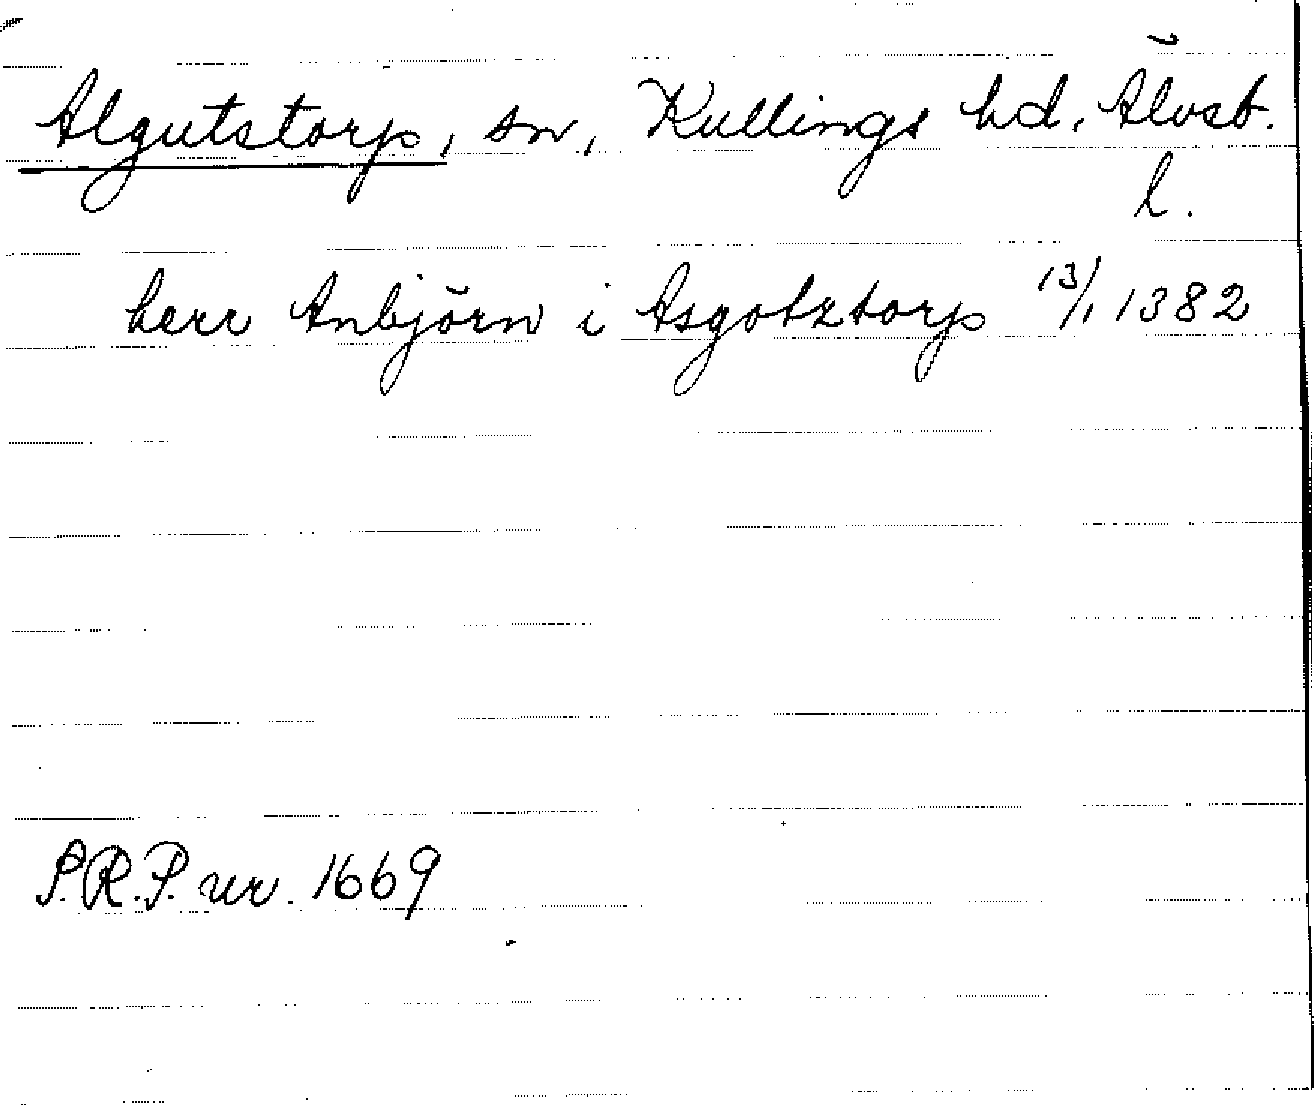 Algutstorp, sn, Kullings hd, Älvsb.
l.
herr Anbjörn i Asgotztorp 13/1 1382
S.R.P. nr. 1669